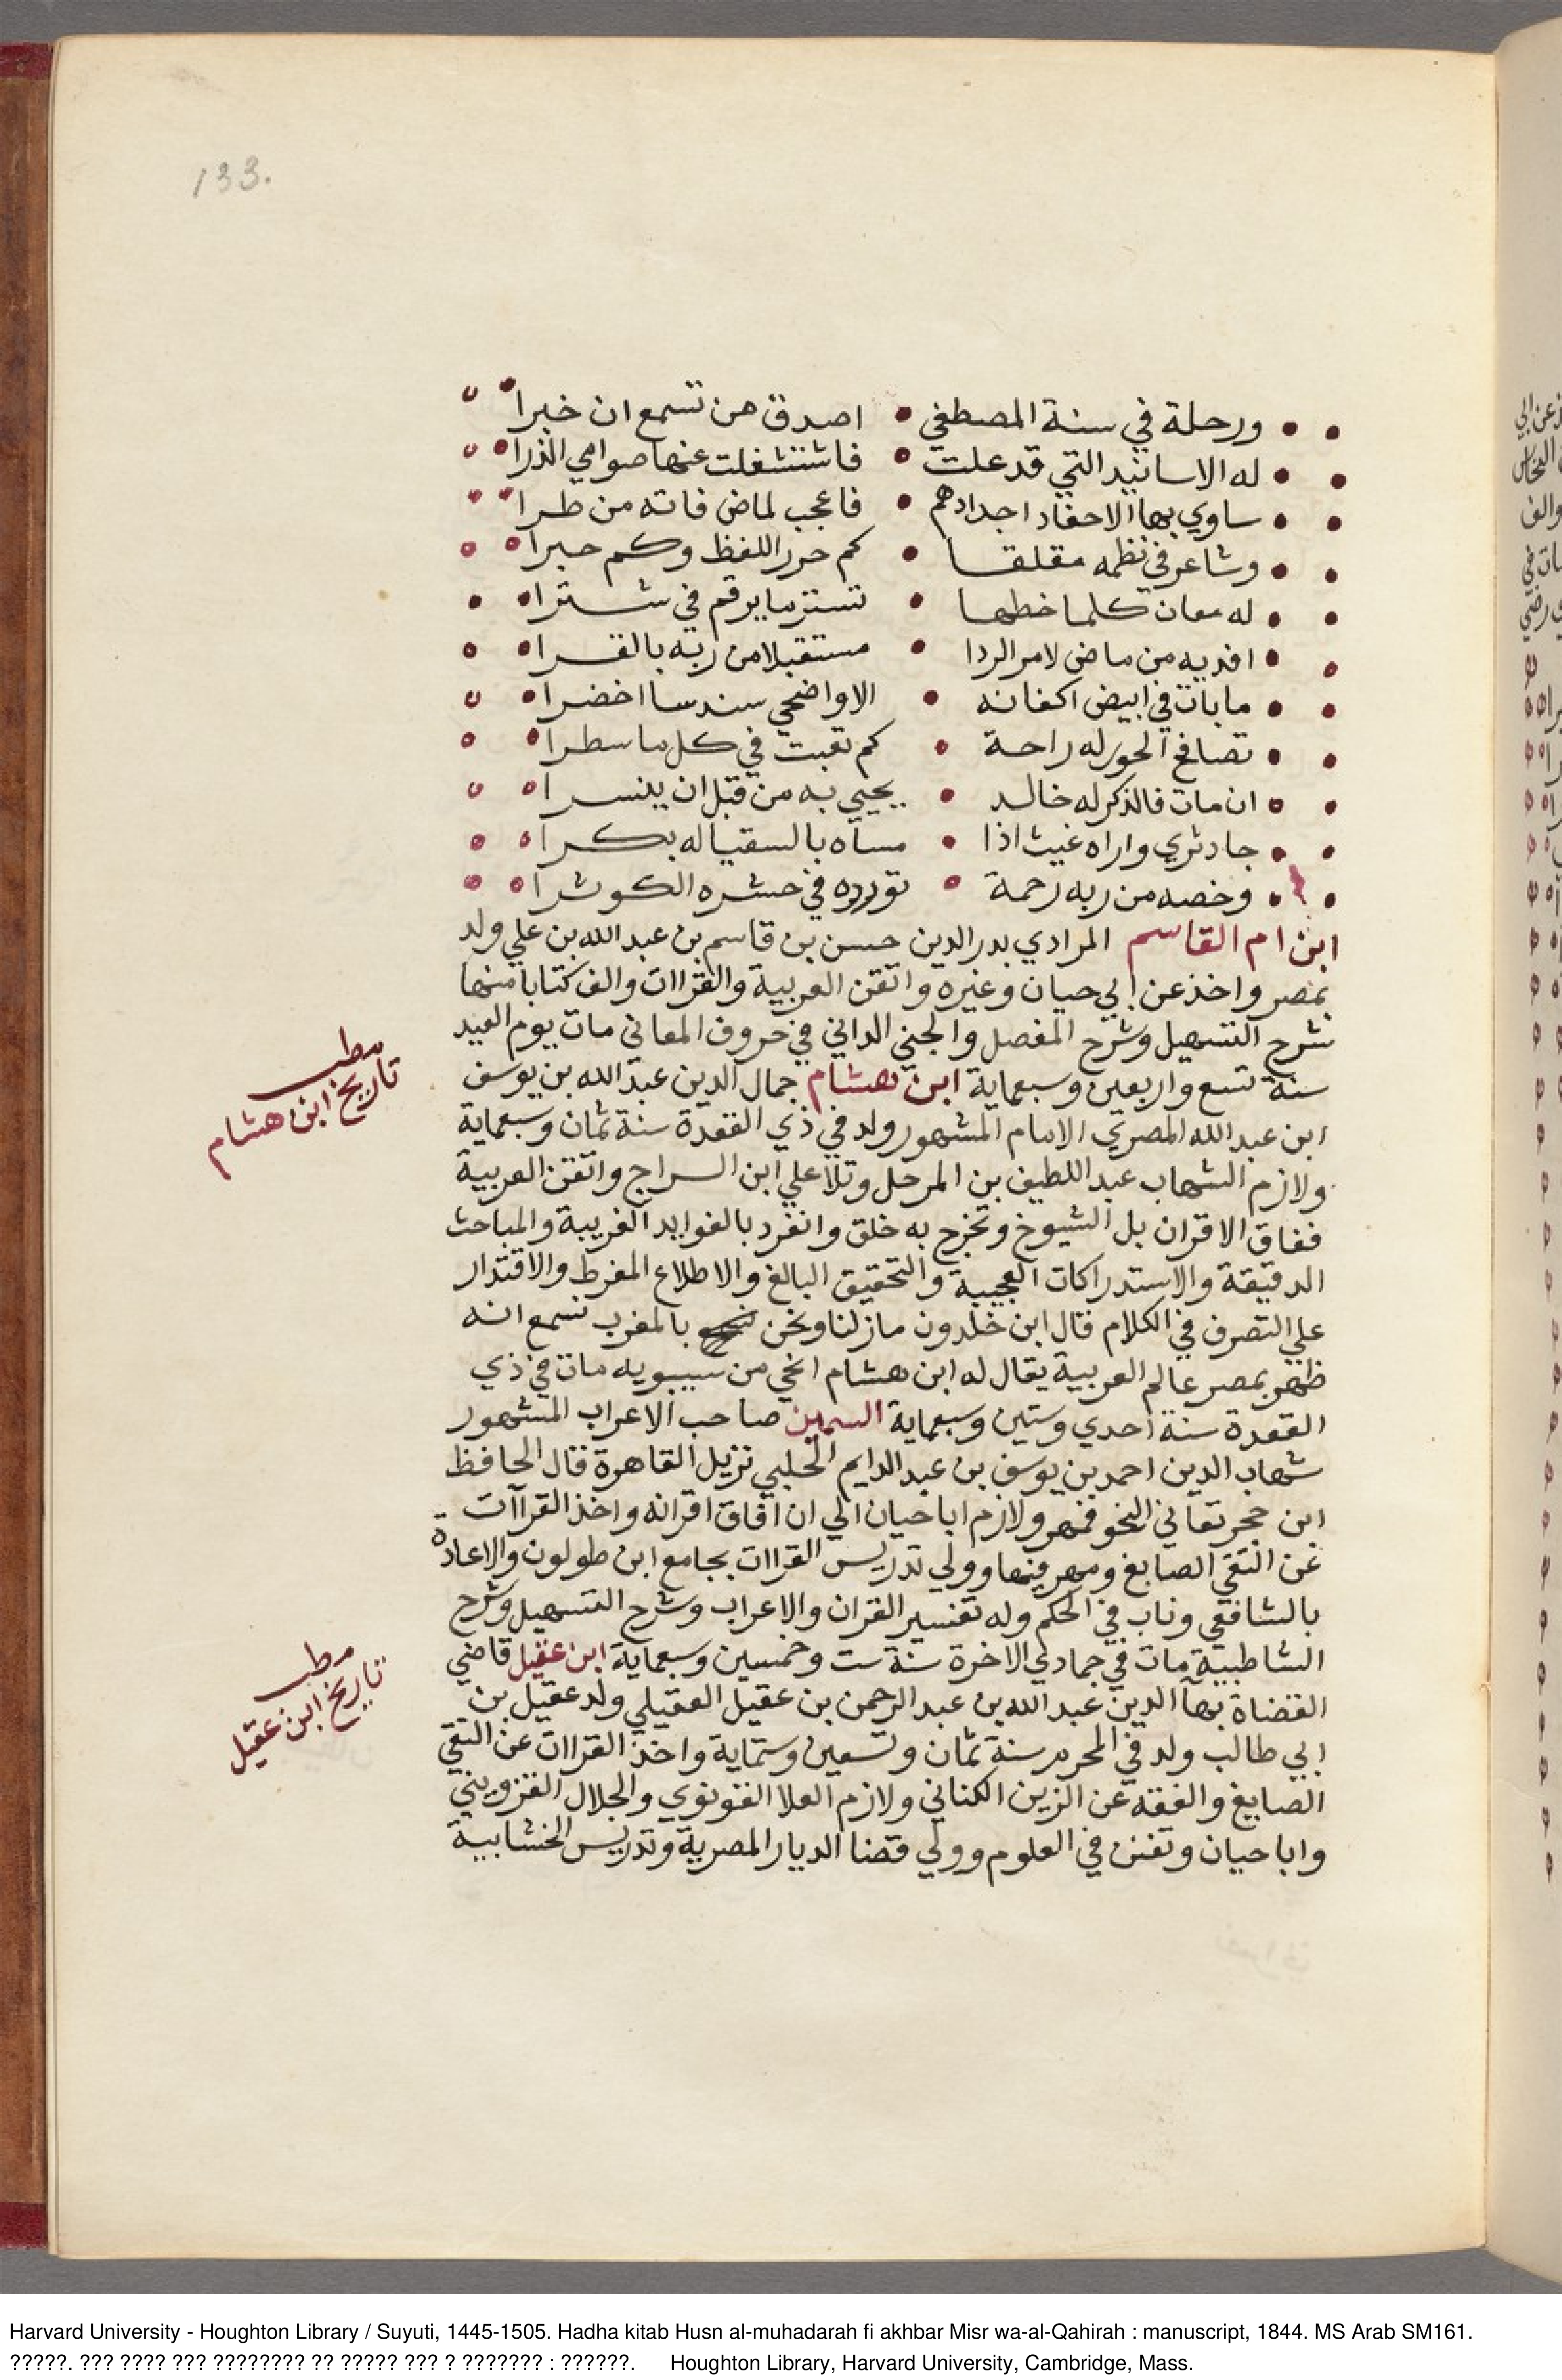 133.
ورحلة في سنة المصطفي اصدق من تسمع ان خبرا
له الاسانيد التي قد علت فاشتشفلت عنها صوامي الذرا
ساوي بها الاحفاد اجدادهم فاعجب لماض فاته من طرا
وشاعر في نظمه مقلقا كم حرر اللفظ وكم حبرا
له معان كلما خطها تستر ما يرقم في شترا
افديه من ماض لامر الردا مستقبلا من ربه بالقرا
مابات في ابيض اكفانه الا واضحي سندسا اخضرا
تصافح الحور له راحة كم تعبت في كل ما سطرا
ان مات فالذكر له خالد يحيي به من قبل ان ينسرا
جاد ثري واراه غيث اذا مساه بالسقيا له بكرا
وخصه من ربه رحمة تورده في حشره الكوثرا
ابن ام القاسم المرادي بدر الدين حسن بن قاسم بن عبد الله بن علي ولد
بمصر واخذ عن ابي حيان وغيره واتقن العربية والقراات والف كتابا منها
شرح التسهيل وشرح المفصل والجني الداني في حروف المعاني مات يوم العيد
سنة تسع واربعين وسبعماية ابن هشام جمال الدين عبد الله بن يوسف
مطب
تاريخ ابن هشام
ابن عبد الله المصري الامام المشهور ولد في ذي القعدة سنة ثمان وسبعماية
ولازم الشهاب عبد اللطيف بن المرحل وتلا علي ابن السراج واتقن العربية
ففاق الاقران بل الشيوخ وتخرج به خلق وانفرد بالفوايد الغريبة والمباحث
الدقيقة والاستدراكات العجيبة والتحقيق البالغ والاطلاع المفرط والاقتدار
علي التصرف في الكلام قال ابن خلدون مازلنا ونحن بالمغرب نسمع انه
ظهر بمصر عالم العربية يقال له ابن هشام انحي من سيبويه مات في ذي
القعدة سنة احدي وستين وسبعماية السمين صاحب الاعراب المشهور
شهاب الدين احمد بن يوسف بن عبد الدايم الحلبي نزيل القاهرة قال الحافظ
ابن حجر تعاني النحو فمهر ولازم ابا حيان الي ان افاق اقرانه واخذ القراآت
عن التقي الصايغ ومهر فيها وولي تدريس القراات بجامع ابن طولون والاعادة
بالشافعي وناب في الحكم وله تفسير القران والاعراب وشرح التسهيل وشرح
الشاطبية مات في جمادي الاخرة سنة ست وخمسين وسبعماية ابن عقيل قاضي
مطب
تاريخ ابن عقيل
القضاة بهآ الدين عبد الله بن عبد الرحمن بن عقيل العقيلي ولد عقيل بن
ابي طالب ولد في المحرم سنة ثمان وتسعين وستماية واخذ القراات عن التقي
الصايغ والفقه عن الزين الكناني ولازم العلا القونوي والجلال القزويني
وابا حيان وتفنن في العلوم وولي قضا الديار المصرية وتدريس الخشابية
Harvard University - Houghton Library / Suyuti, 1445-1505. Hadha kitab Husn al-muhadarah fi akhbar Misr wa-al-Qahirah : manuscript, 1844. MS Arab SM161.
?????. ??? ???? ??? ???????? ?? ????? ??? ? ??????? : ??????. Houghton Library, Harvard University, Cambridge, Mass.